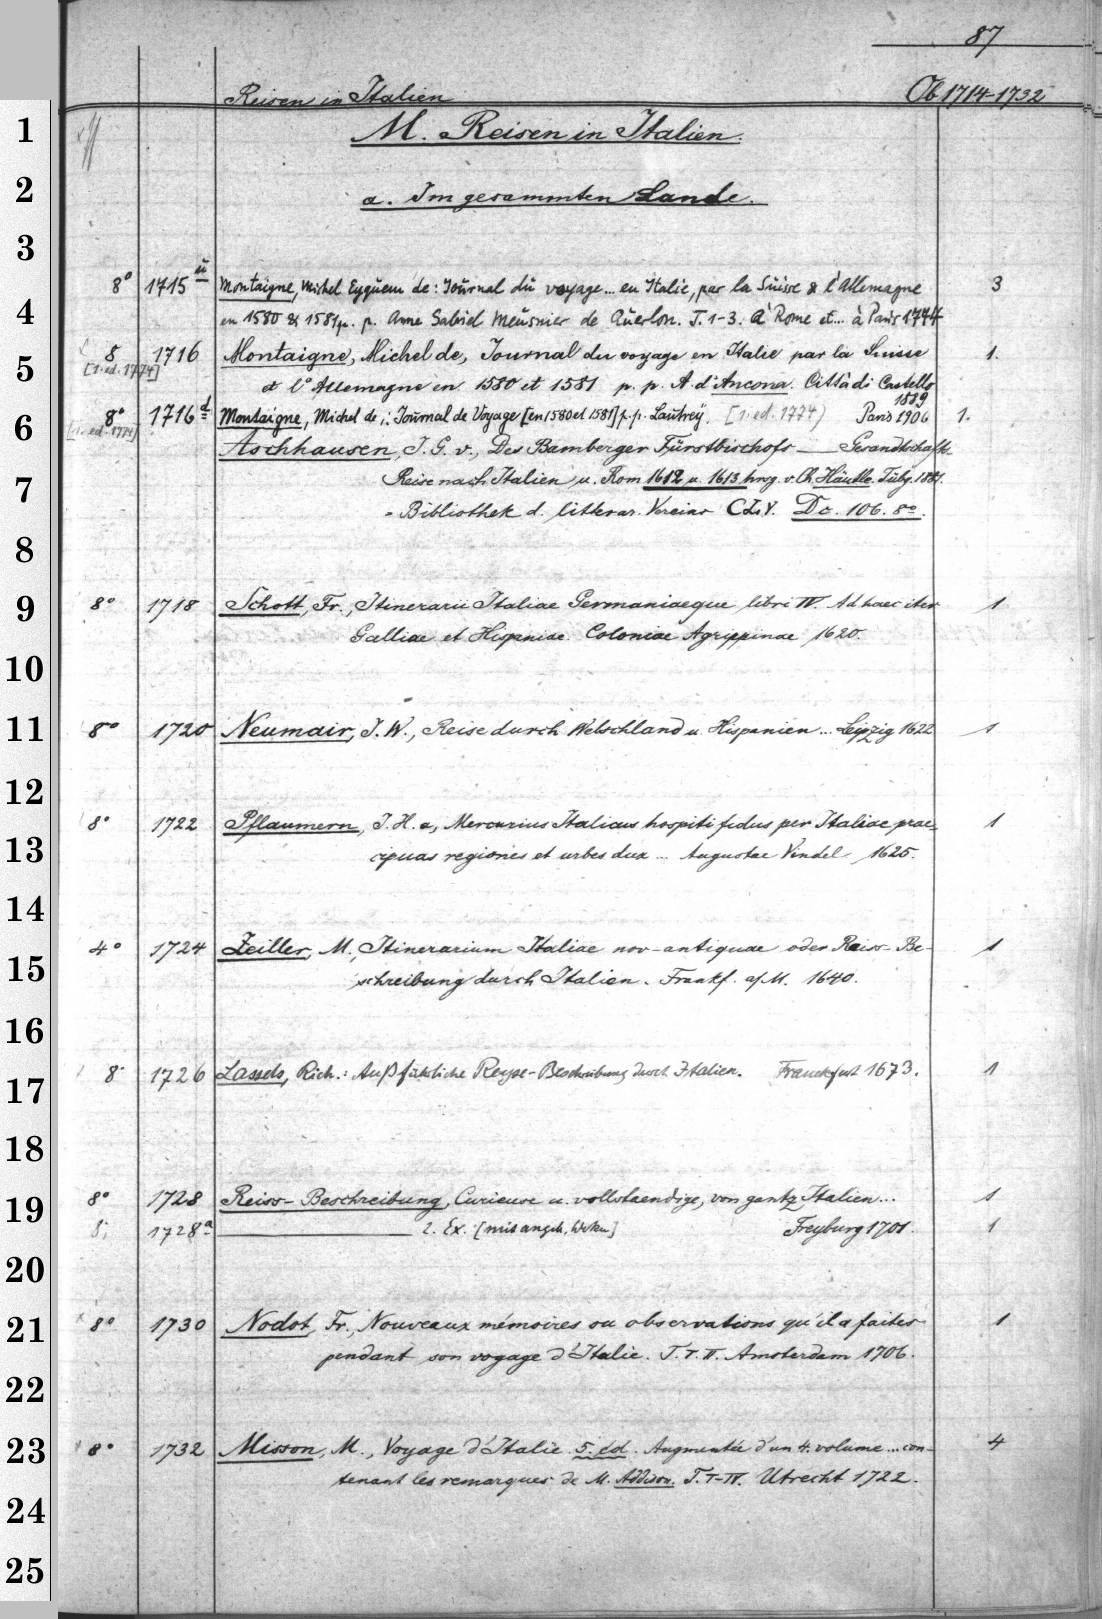 87
Reisen in Italien Ob 1714-1732
1 M. Reisen in Italien.
2 a. Im gesammten Lande.
3
8° 1715 ü Montaigne, Michel Eyquem de: Journal du voyage... en Italie, par la Suisse & l'Allemagne 3
4 en 1580 & 1581 p. p. Anne Gabriel Meusnier de Querlon. T. 1-3. A Rome et... à Paris 1774
8 1716 Montaigne, Michel de, Journal du voyage en Italie par la Suisse 1.
5 [1. ed. 1774] et l'Allemagne en 1580 et 1581 p. p. A. d'Ancona. Città di Castello
1889
6 8° 1716 d Montaigne, Michel de,: Journal de Voyage [en 1580 et 1581] p. p. Lautrey. [1. ed. 1774) Paris 1906 1.
[1. ed. 1774] Aschhausen, J. G. v., Des Bamberger Fürstbischofs — Gesandtschafts
7 Reise nach Italien u. Rom 1612 u. 1613 hrsg. v. Ch. Häutle. Tübg. 1881.
= Bibliothek d. litterar. Vereins CLV. Dc. 106. 8°.
8
9 8° 1718 Schott, Fr., Itinerarii Italiae Germaniaeque libri IV. Ad haec iter 1
Galliae et Hispaniae. Coloniae Agrippinae 1620.
10
11 8° 1720 Neumair, J. W., Reise durch Welschland u. Hispanien... Leipzig 1622 1
12
8° 1722 Pflaumern, J. H. a, Mercurius Italicus hospiti fidus per Italiae prae- 1
13 cipuas regiones et urbes dux... Augustae Vindel. 1625.
14
4° 1724 Zeiller, M., Itinerarium Italiae nov-antiquae oder Raiss-Be- 1
15 schreibung durch Italien. Frankf. a/M. 1640.
16
8° 1726 Lassels, Rich.: Außführliche Reyse-Beschreibung durch Italien. Franckfurt 1673. 1
17
18
19 8° 1728 Reiss-Beschreibung, Curieuse u. vollstaendige, von gantz Italien... 1
8° 1728 a ——— 2. Ex. [mit angeb. Werken] Freyburg 1701. 1
20
21 8° 1730 Nodot, Fr., Nouveaux mémoires ou observations qu'il a faites 1
pendant son voyage d'Italie. T. I. II. Amsterdam 1706.
22
23 8° 1732 Misson, M., Voyage d'Italie. 5. éd. Augmentée d'un 4. volume... con- 4
tenant les remarques de M. Addison. T. I-IV. Utrecht 1722.
24
25